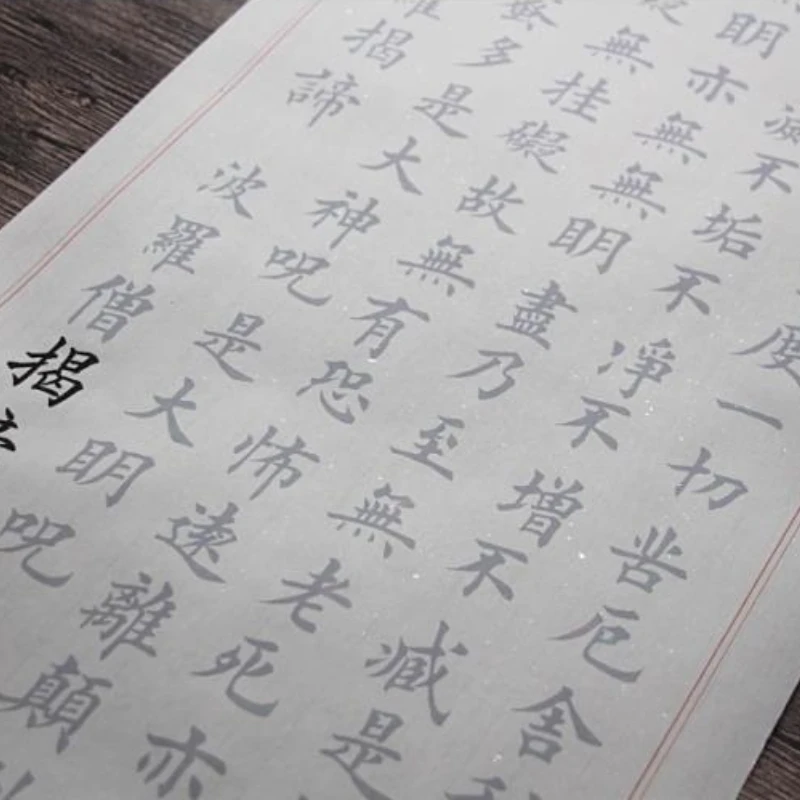 度一切苦厄舍
滅不垢不淨不增不減是
明亦無無明盡乃至無老死亦
無挂礙故無有恐怖遠離顛
多是大神呪是大明呪
揭諦 波羅僧揭